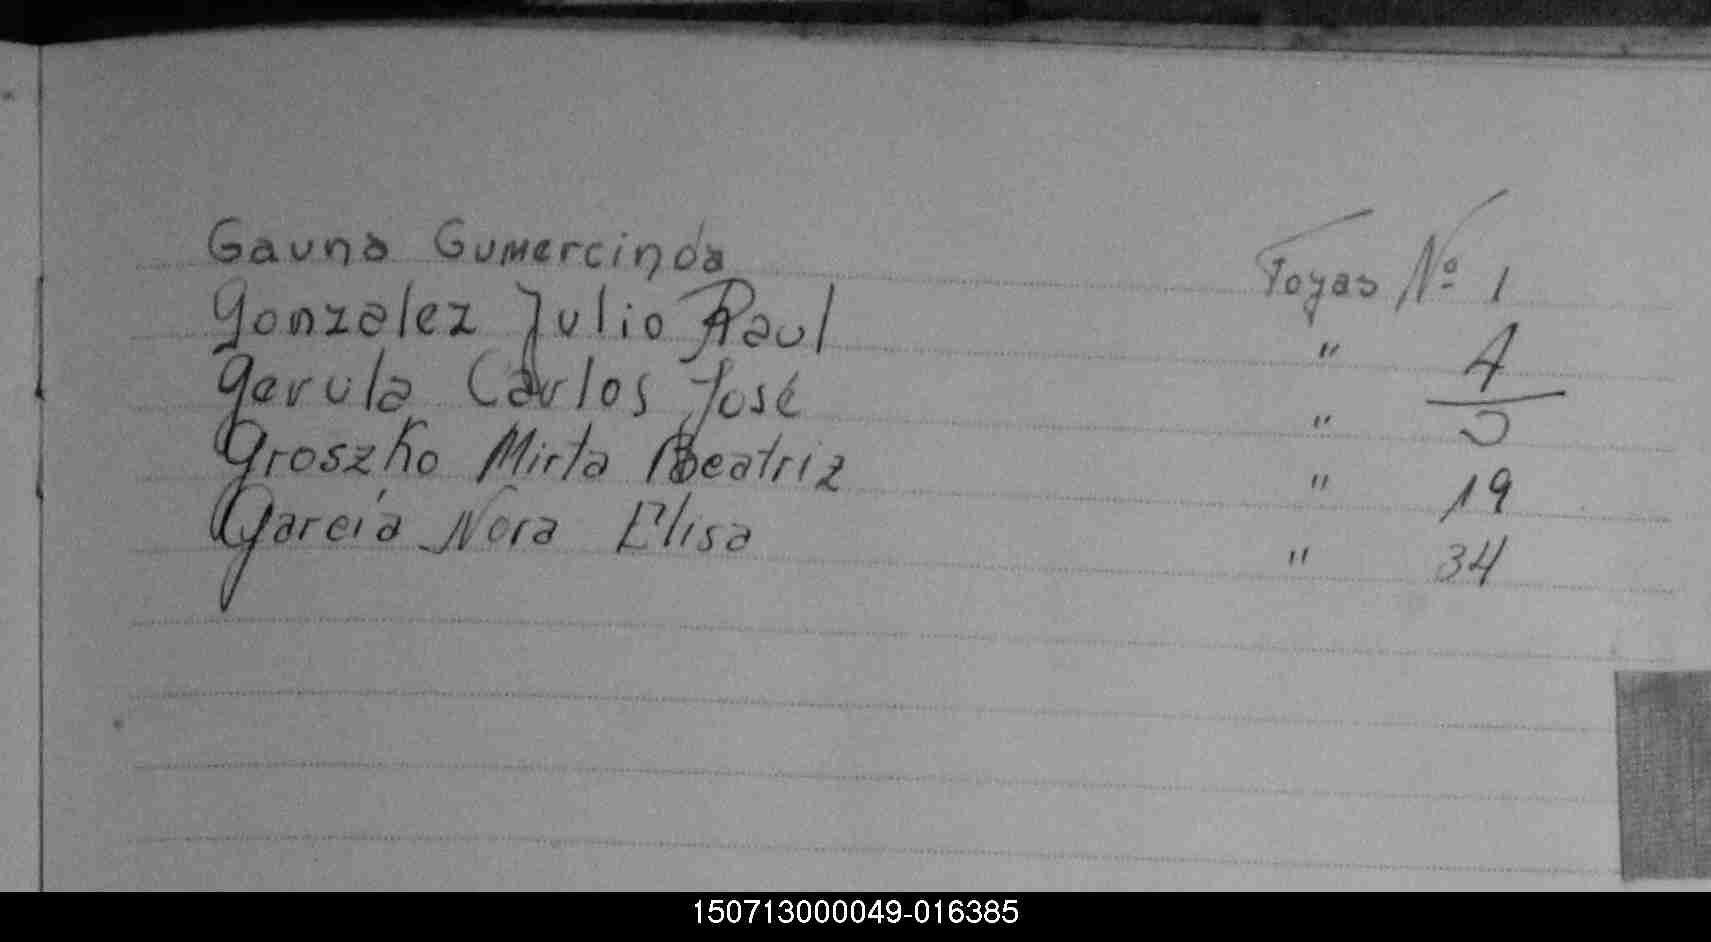 Gauna Gumercinda Foyas Nº 1
Gonzalez Julio Raul " 4
Gerula Carlos José " 5
Groszko Mirta Beatriz " 19
García Nora Elisa " 34
150713000049-016385